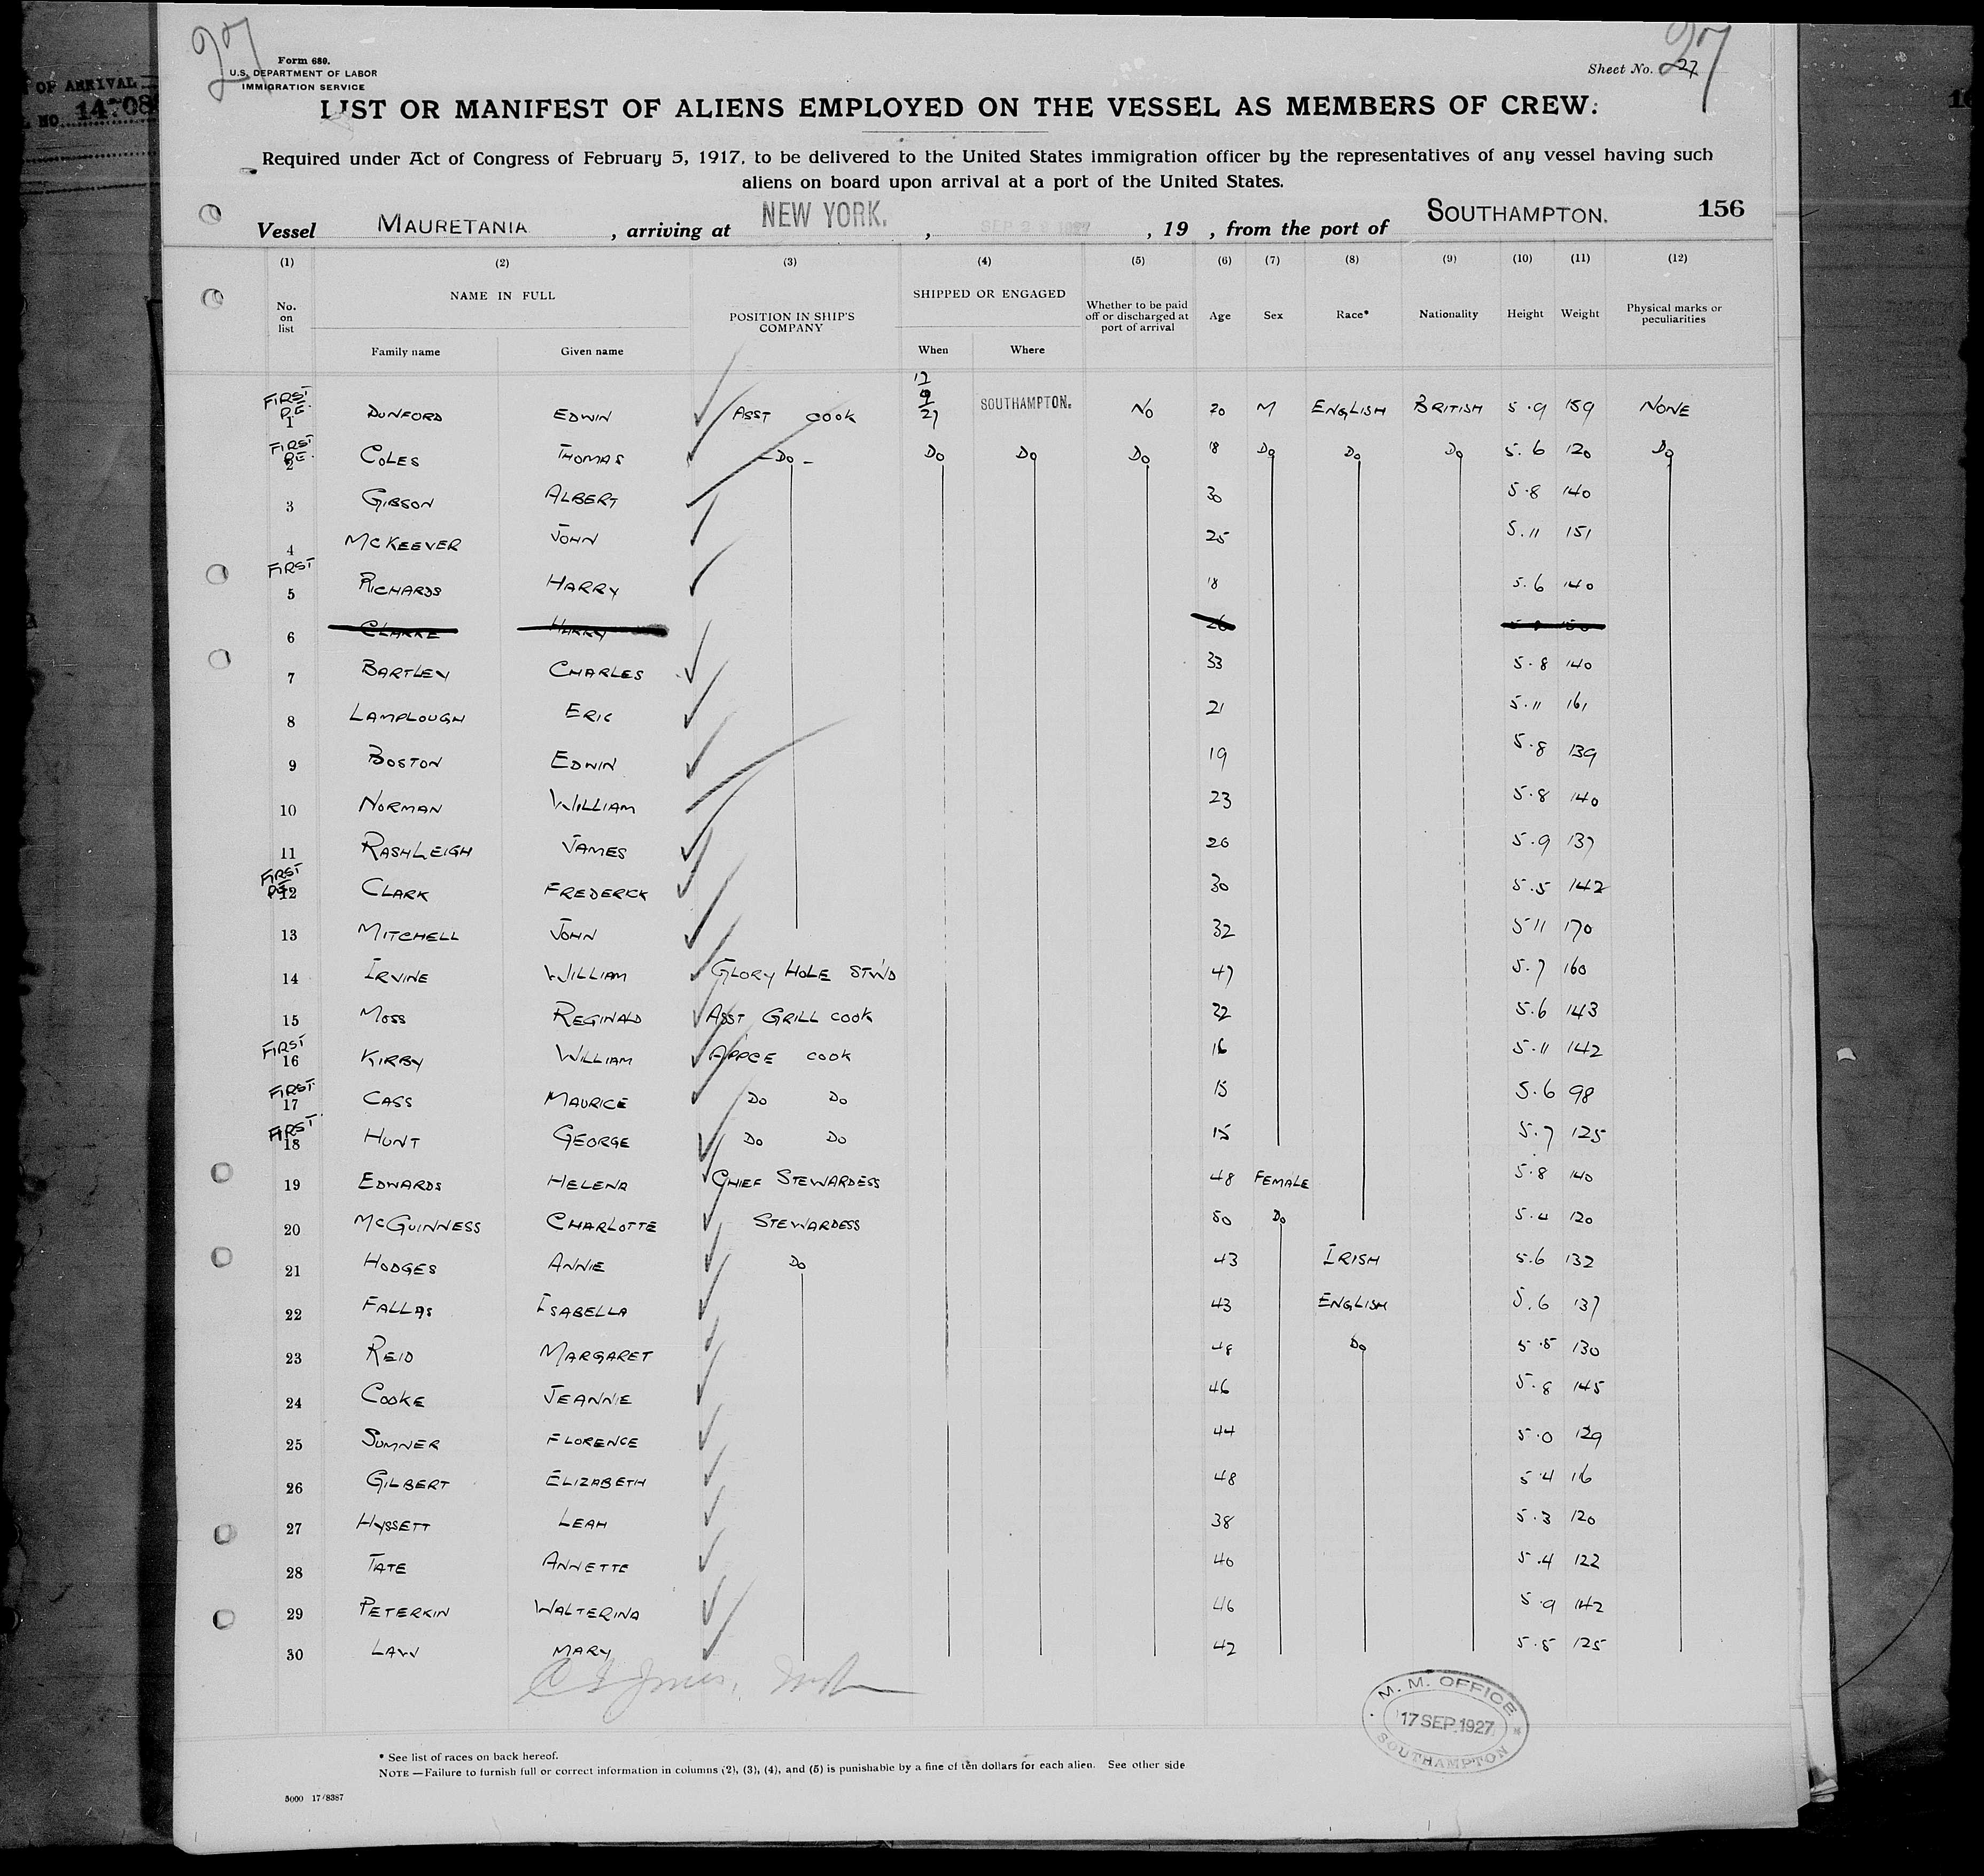 27
27
Form 680.
U.S. DEPARTMENT OF LABOR
IMMIGRATION SERVICE
Sheet No. 27
OF ARRIVAL
NO. 14708
LIST OR MANIFEST OF ALIENS EMPLOYED ON THE VESSEL AS MEMBERS OF CREW.
Required under Act of Congress of February 5, 1917, to be delivered to the United States immigration officer by the representatives of any vessel having such
aliens on board upon arrival at a port of the United States.
Vessel MAURETANIA, arriving at NEW YORK. , SEP 1927 , 19 , from the port of SOUTHAMPTON. 156
(1) (2) (3) (4) (5) (6) (7) (8) (9) (10) (11) (12)
No. on list NAME IN FULL POSITION IN SHIP'S COMPANY SHIPPED OR ENGAGED Whether to be paid off or discharged at port of arrival Age Sex Race* Nationality Height Weight Physical marks or peculiarities
Family name Given name When Where
FIRST P.E. 1 DUNFORD EDWIN ASST COOK 17 9 27 SOUTHAMPTON. NO 20 M ENGLISH BRITISH 5.9 159 NONE
FIRST P.E. 2 COLES THOMAS -DO- DO DO DO 18 DO DO DO 5.6 120 DO
3 GIBSON ALBERT 30 5.8 140
4 MCKEEVER JOHN 25 5.11 151
FIRST 5 RICHARDS HARRY 18 5.6 140
6 CLARKE HARRY 26
7 BARTLEY CHARLES 33 5.8 140
8 LAMPLOUGH ERIC 21 5.11 161
9 BOSTON EDWIN 19 5.8 139
10 NORMAN WILLIAM 23 5.8 140
11 RASHLEIGH JAMES 26 5.9 137
FIRST P.E. 12 CLARK FREDERICK 30 5.5 142
13 MITCHELL JOHN 32 5 11 170
14 IRVINE WILLIAM GLORY HOLE STWD 47 5.7 160
15 MOSS REGINALD ASST GRILL COOK 22 5.6 143
FIRST 16 KIRBY WILLIAM APPCE COOK 16 5.11 142
FIRST 17 CASS MAURICE DO DO 15 5.6 98
FIRST 18 HUNT GEORGE DO DO 15 5.7 125
19 EDWARDS HELENA CHIEF STEWARDESS 48 FEMALE 5.8 140
20 MCGUINNESS CHARLOTTE STEWARDESS 50 DO 5.4 120
21 HODGES ANNIE DO 43 IRISH 5.6 132
22 FALLAS ISABELLA 43 ENGLISH 5.6 137
23 REID MARGARET 48 DO 5.5 130
24 COOKE JEANNIE 46 5.8 145
25 SUMNER FLORENCE 44 5.0 129
26 GILBERT ELIZABETH 48 5.4 116
27 HYSSETT LEAH 38 5.3 120
28 TATE ANNETTE 40 5.4 122
29 PETERKIN WALTERINA 46 5.9 142
30 LAW MARY 42 5.5 125
M. M. OFFICE
17 SEP. 1927
SOUTHAMPTON
* See list of races on back hereof.
NOTE.—Failure to furnish full or correct information in columns (2), (3), (4), and (5) is punishable by a fine of ten dollars for each alien. See other side
5000 17/8387